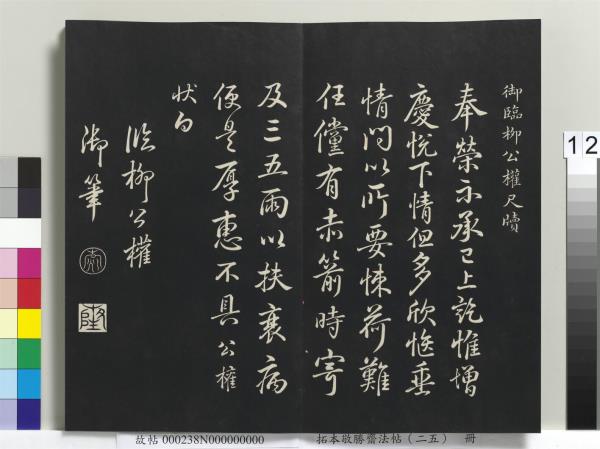 御臨柳公權尺牘
奉榮示承已上訖惟增
慶悅下情但多欣愜垂
情問以所要悚荷難
任儻有赤箭時寄
及三五兩以扶衰病
便是厚惠不具公權
狀白
臨柳公權
御筆
乾
隆
故帖 000238N000000000 拓本敬勝齋法帖（二五） 冊
12